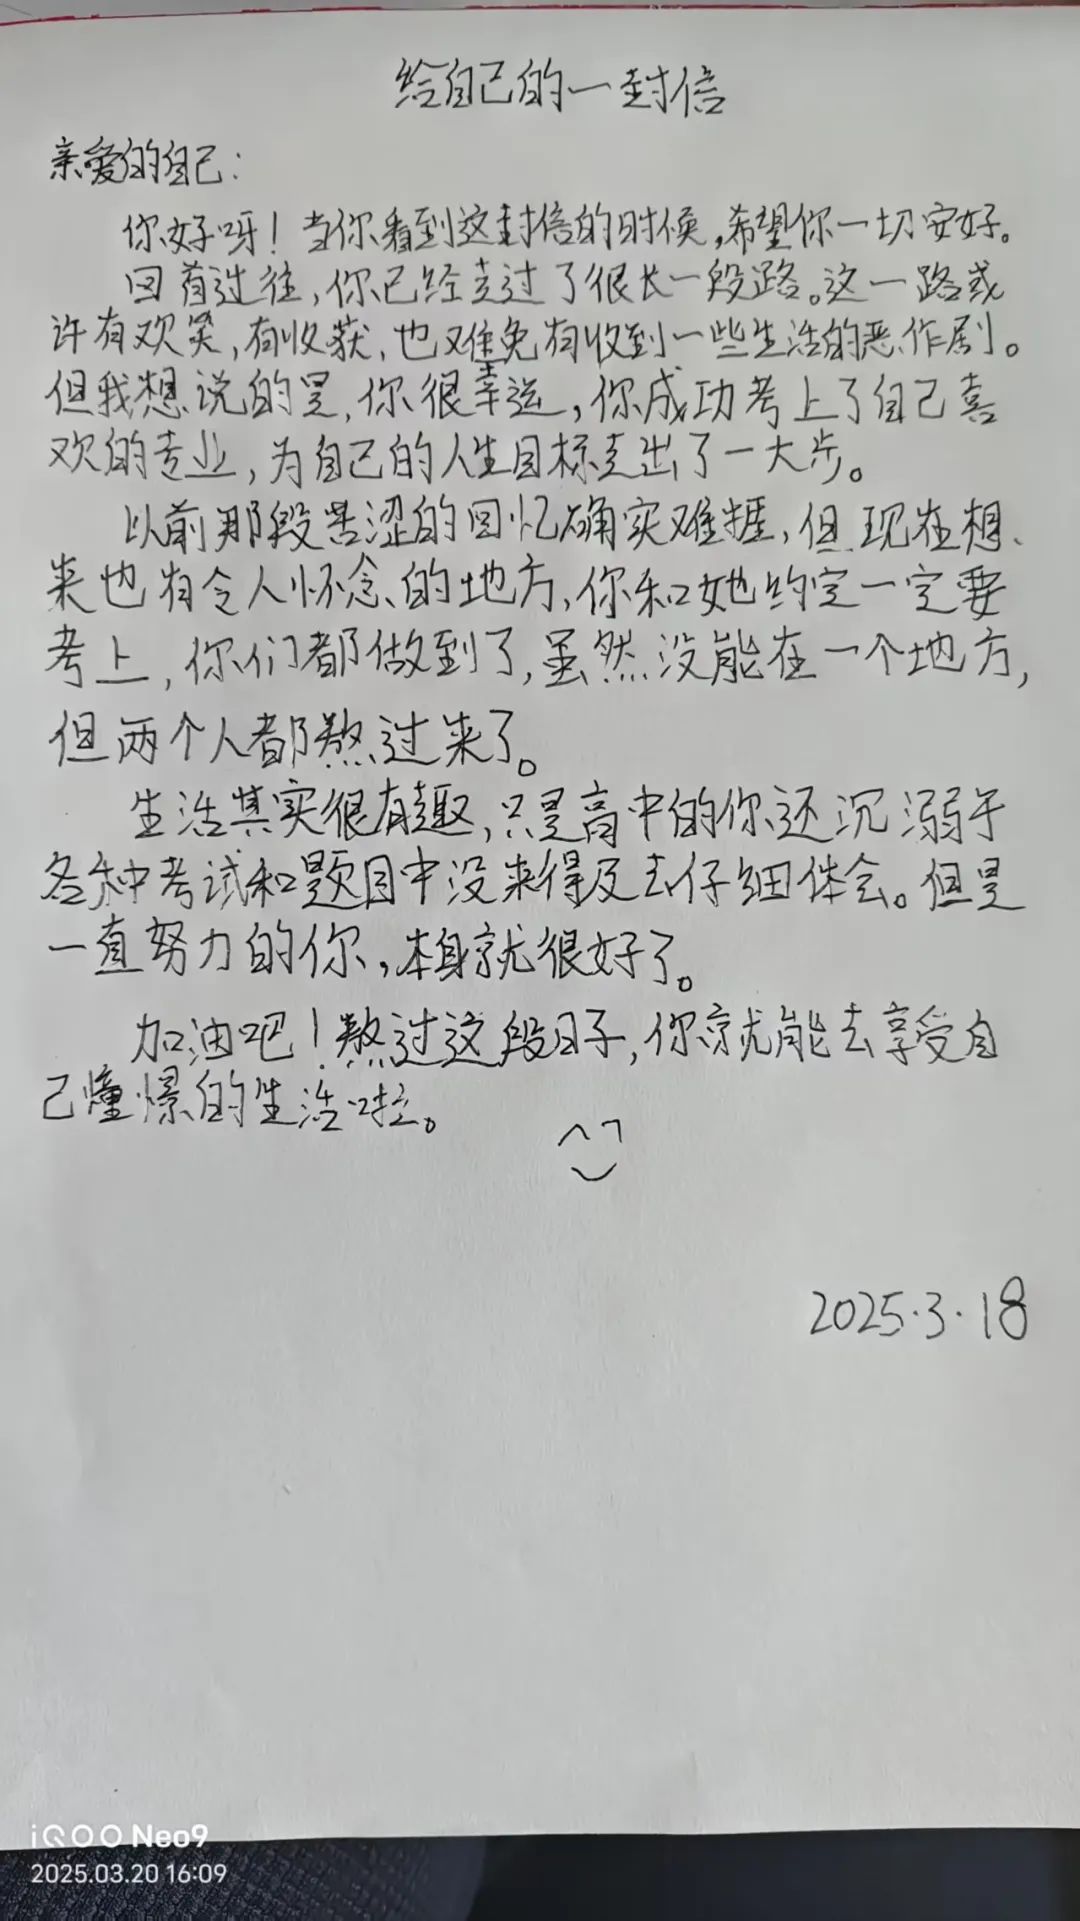 给自己的一封信
亲爱的自己：
你好呀！当你看到这封信的时候，希望你一切安好。
回首过往，你已经走过了很长一段路。这一路或
许有欢笑，有收获，也难免有收到一些生活的恶作剧。
但我想说的是，你很幸运，你成功考上了自己喜
欢的专业，为自己的人生目标走出了一大步。
以前那段苦涩的回忆确实难捱，但现在想
来也有令人怀念的地方，你和她约定一定要
考上，你们都做到了，虽然没能在一个地方，
但两个人都熬过来了。
生活其实很有趣，只是高中的你还沉溺于
各种考试和题目中没来得及去仔细体会。但是
一直努力的你，本身就很好了。
加油吧！熬过这段日子，你就能去享受自
己憧憬的生活啦。
2025.3.18
iQOO Neo9
2025.03.20 16:09